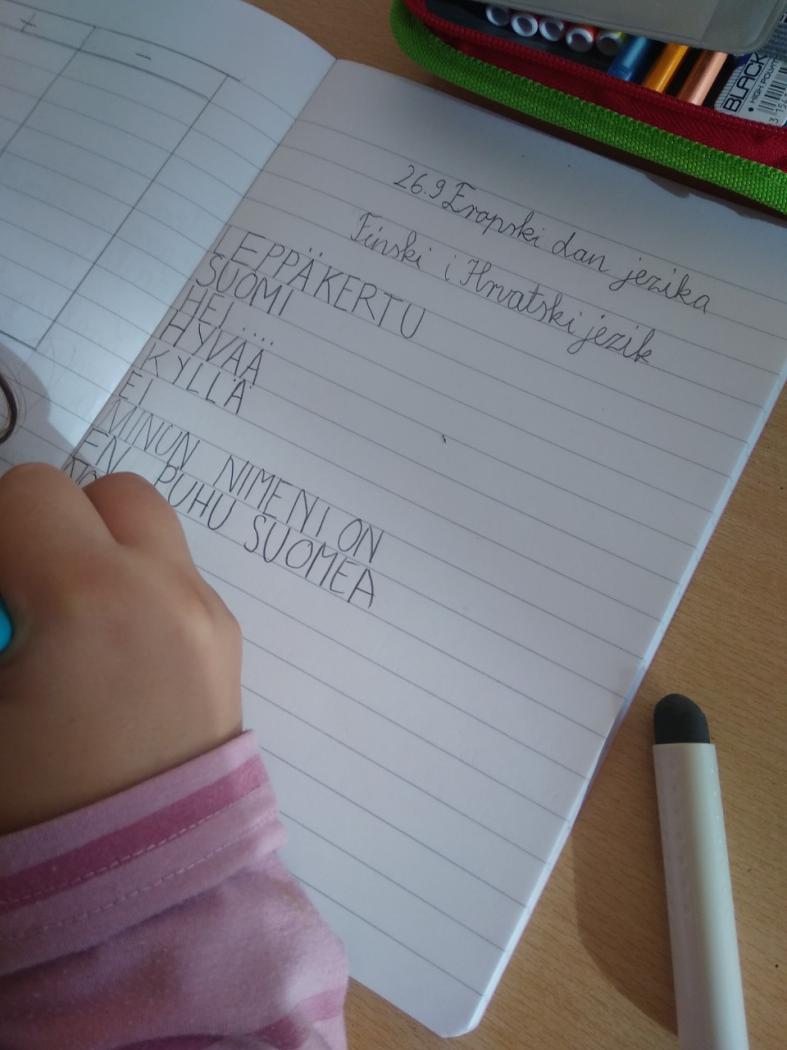 + -
26.9 Eropski dan jezika
Finski i Hrvatski jezik
LEPPÄKERTU
SUOMI
HEJ....
HYVÄÄ
KYLLÄ
EI
MINUN NIMENI ON
EN PUHU SUOMEA
BLACK